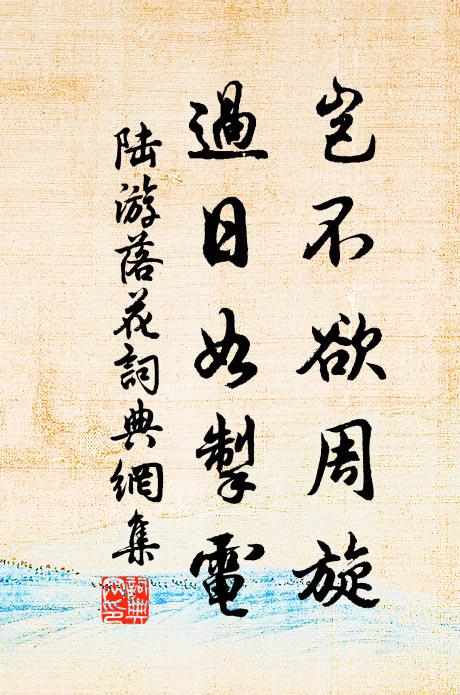 豈不欲周旋
過日如掣電
陆游落花詞典網集
詞典